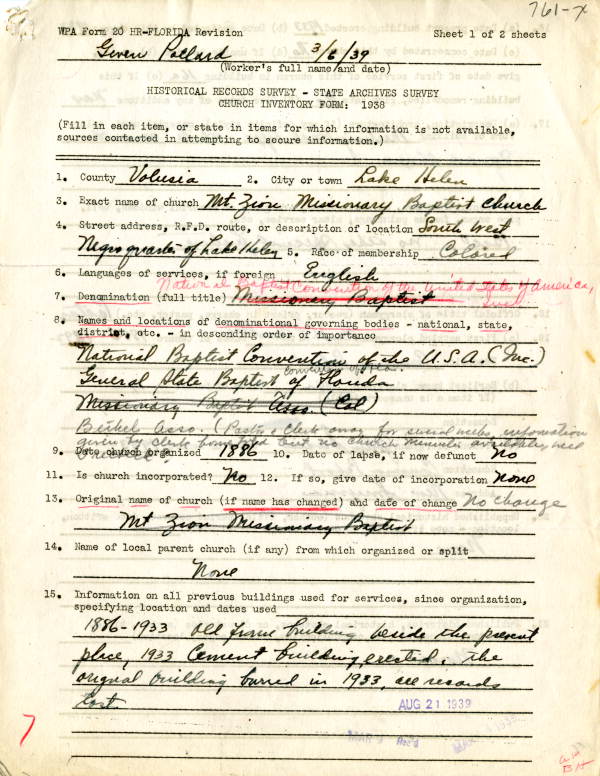 761-x
WPA Form 20 HR-FLORIDA Revision Sheet 1 of 2 sheets
Gwen Pollard 3/6/39
(Worker's full name and date)
HISTORICAL RECORDS SURVEY - STATE ARCHIVES SURVEY
CHURCH INVENTORY FORM: 1938
(Fill in each item, or state in items for which information is not available,
sources contacted in attempting to secure information.)
1. County Volusia 2. City or town Lake Helen
3. Exact name of church Mt. Zion Missionary Baptist Church
4. Street address, R.F.D. route, or description of location South West
Negro quarter of Lake Helen 5. Race of membership Colored
6. Languages of services, if foreign English
National Baptist Convention of the United States of America,
7. Denomination (full title) Missionary Baptist
8. Names and locations of denominational governing bodies - national, state,
district, etc. - in descending order of importance
National Baptist Convention of the U.S.A. (Inc.)
General State Baptist Convention of Fla. of Florida
Missionary Baptist Asso. (Col)
Bethel Asso. (Pastor & Clerk away for
given by clerk but no church minutes available
9. Date church organized 1886 10. Date of lapse, if now defunct No
11. Is church incorporated? No 12. If so, give date of incorporation None
13. Original name of church (if name has changed) and date of change No change
Mt Zion Missionary Baptist
14. Name of local parent church (if any) from which organized or split
None
15. Information on all previous buildings used for services, since organization,
specifying location and dates used
1886-1933 old frame building beside the present
place, 1933 Cement building erected. the
original building burned in 1933, all records
lost.
AUG 21 1939
7